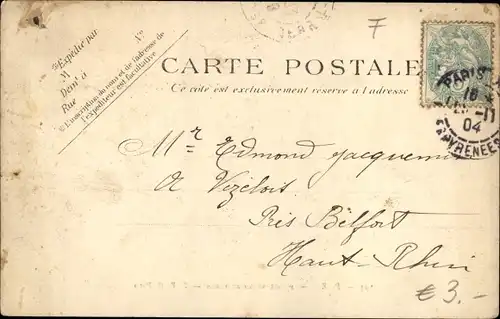 F
Expédié par
M
Demt à
Rue
No
L'inscription du nom et de l'adresse de
l'expéditeur est facultative
CARTE POSTALE
Ce côté est exclusivement réservé à l'adresse
PARIS
18
-11
04
PYRENEES
Mr Edmond Jacquemin
à Vézelois
Près Belfort
Haut-Rhin
€ 3.-